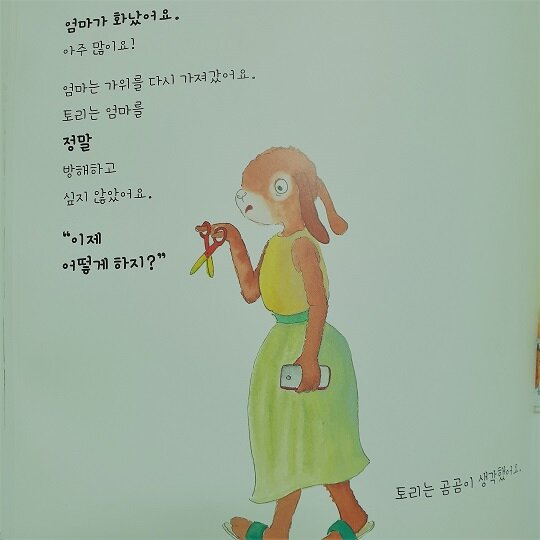 엄마가 화났어요.
아주 많이요!
엄마는 가위를 다시 가져갔어요.
토리는 엄마를
정말
방해하고
싶지 않았어요.
“이제
어떻게 하지?”
토리는 곰곰이 생각했어요.